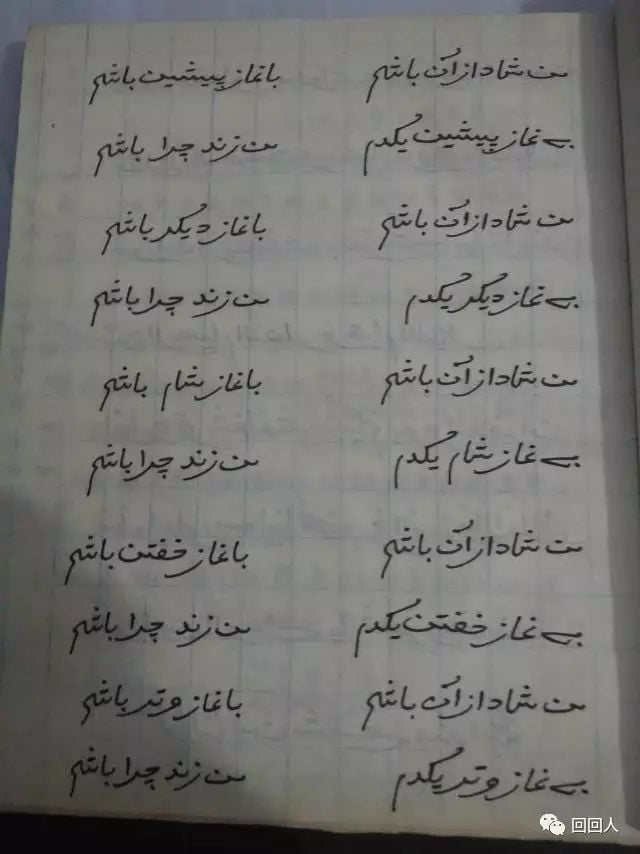 من شاد از آن باشم با نماز پیشین باشم
بی نماز پیشین یکدم من زند چرا باشم
من شاد از آن باشم با نماز دیگر باشم
بی نماز دیگر یکدم من زند چرا باشم
من شاد از آن باشم با نماز شام باشم
بی نماز شام یکدم من زند چرا باشم
من شاد از آن باشم با نماز خفتن باشم
بی نماز خفتن یکدم من زند چرا باشم
من شاد از آن باشم با نماز وتر باشم
بی نماز وتر یکدم من زند چرا باشم
回回人